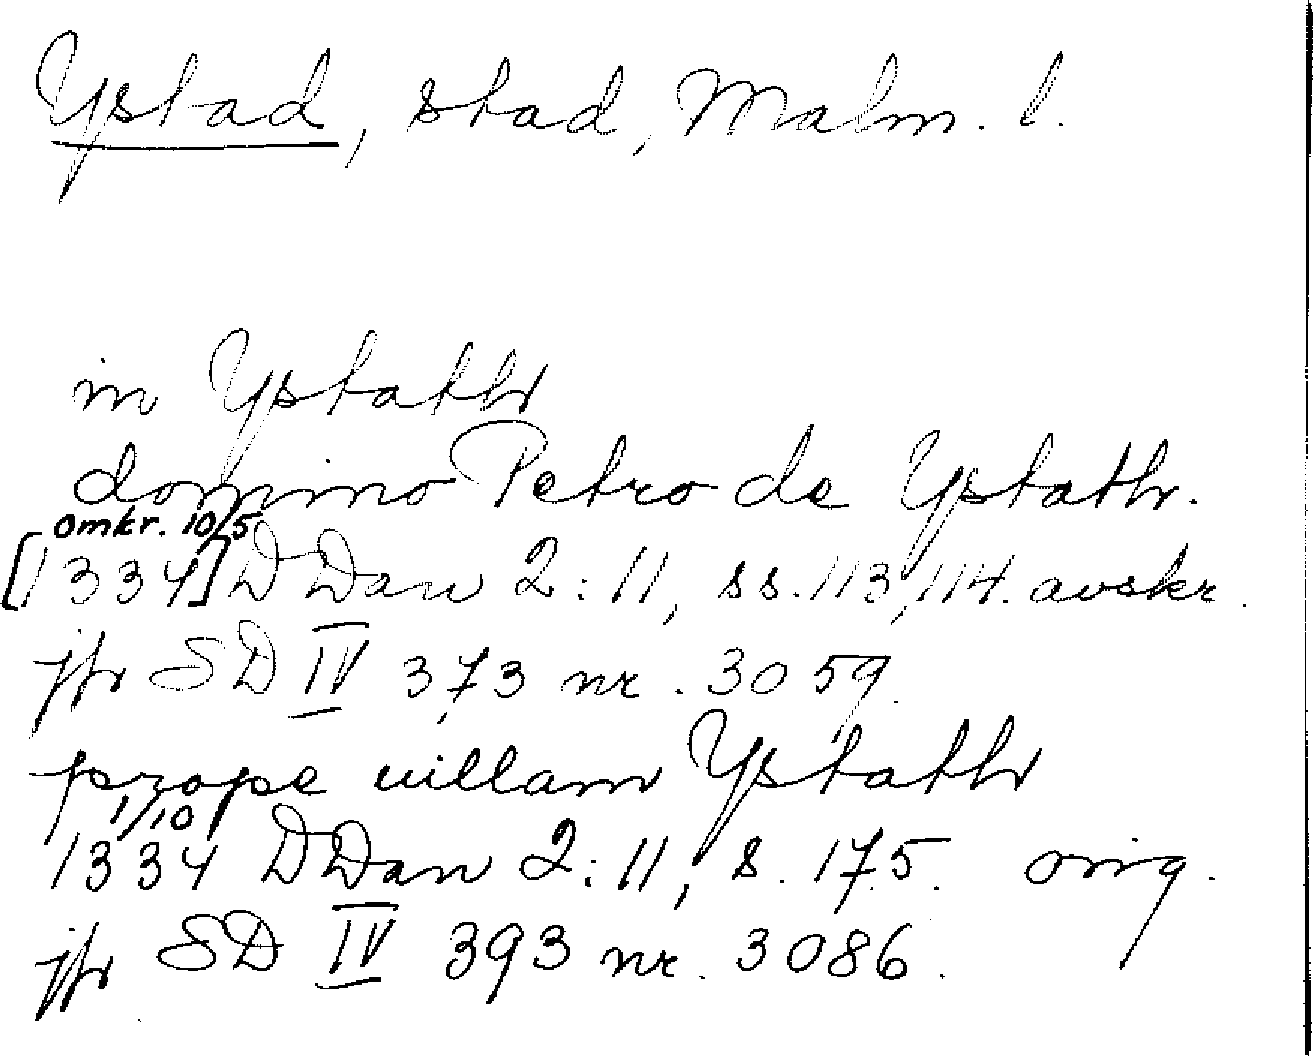 Ystad, stad, Malm. l.
in Ystathr
domino Petro de Ystathr.
omkr. 10/5
[1334] DDan 2:11, ss. 113, 114. avskr.
jfr SD IV 373 nr. 3059.
prope uillam Ystathr
1/10
1334 DDan 2:11, s. 175. orig.
jfr SD IV 393 nr. 3086.